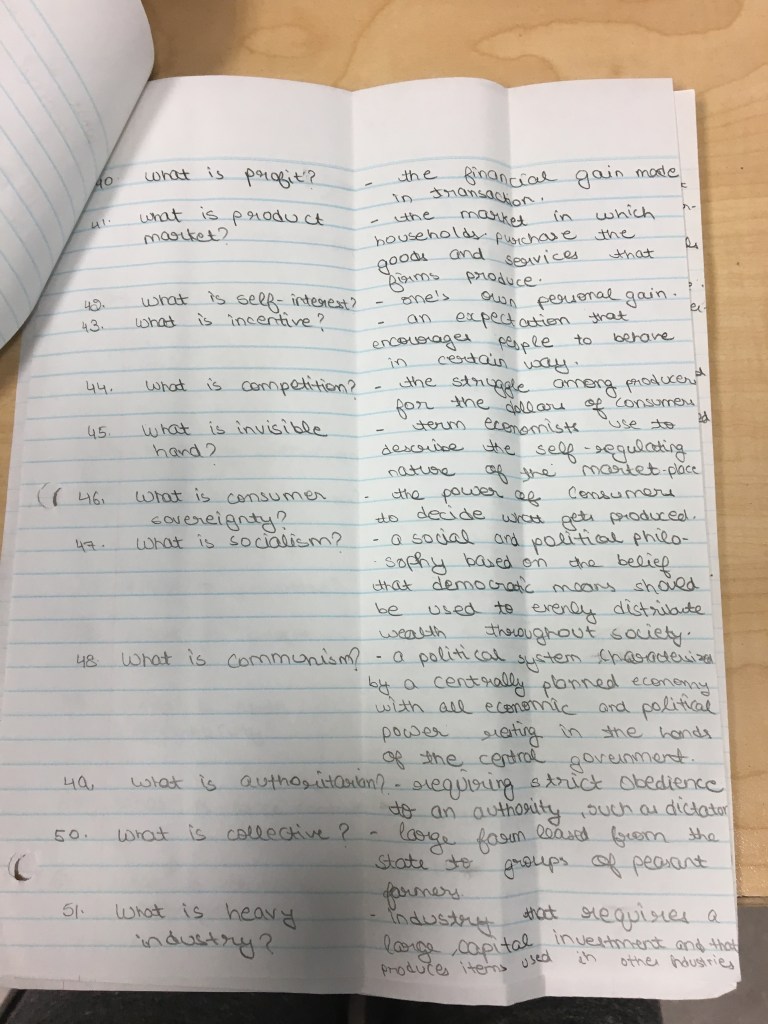 40. what is profit? - the financial gain made
in transaction.
41. what is product - the market in which
market? households purchase the
goods and services that
firms produce.
42. what is self-interest? - one's own personal gain.
43. what is incentive? - an expectation that
encourages people to behave
in certain way.
44. what is competition? - the struggle among producers
for the dollars of consumers
45. what is invisible - term economists use to
hand? describe the self-regulating
nature of the market-place
46. what is consumer - the power of consumers
sovereignty? to decide what gets produced.
47. what is socialism? - a social and political philo-
sophy based on the belief
that democratic means should
be used to evenly distribute
wealth throughout society.
48. what is communism? - a political system characterizes
by a centrally planned economy
with all economic and political
power resting in the hands
of the central government.
49. what is authoritarian? - requiring strict obedience
to an authority, such as dictator
50. what is collective? - large farm leased from the
state to groups of peasant
farmers.
51. what is heavy - industry that requires a
industry? large capital investment and that
produces items used in other industries